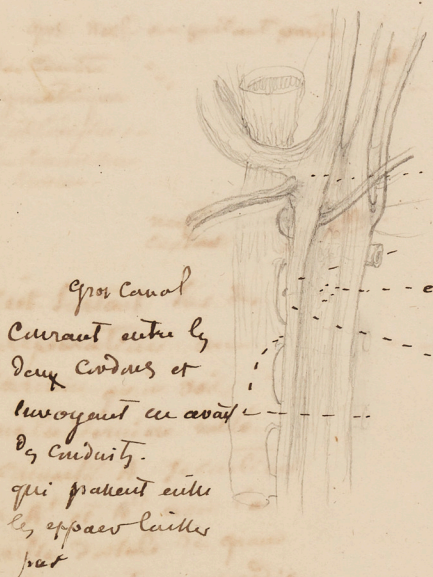 Gros canal
Courant entre les
deux cordons et
envoyant en avant
des conduits.
qui passent entre
les
par